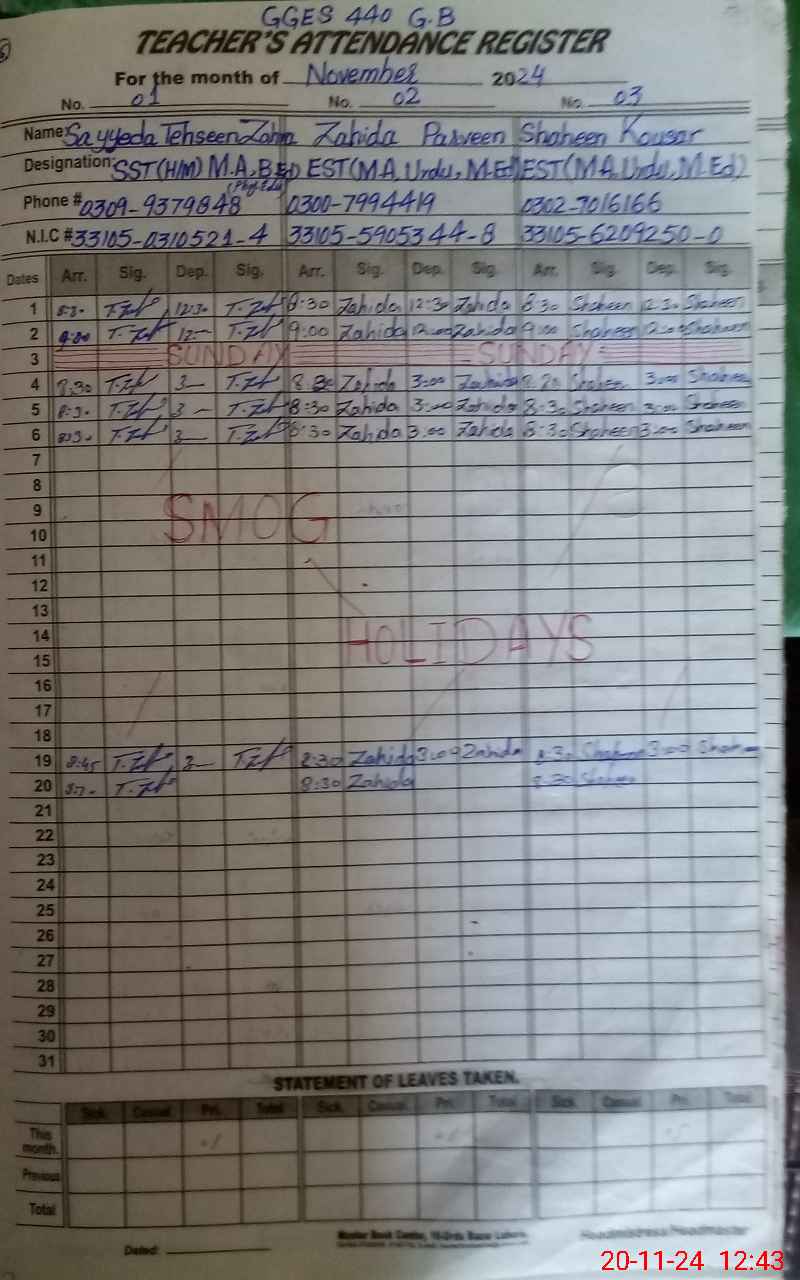 GGES 440 G.B
TEACHER'S ATTENDANCE REGISTER
For the month of November 2024
No. 01 No. 02 No. 03
Name: Sayyeda Tehseen Zahra Zahida Parveen Shaheen Kousar
Designation: SST(H/M) M.A, B.Ed EST(M.A, Urdu, M.Ed) EST(M.A, Urdu, M.Ed)
Phone # 0309-9379848 0300-7994419 0302-7016166
N.I.C # 33105-0310521-4 33105-5905344-8 33105-6209250-0
Dates Arr. Sig. Dep. Sig. Arr. Sig. Dep. Sig. Arr. Sig. Dep. Sig.
1 12:30 8:30 Zahida 12:30 Zahida 8:30 Shaheen 12:30 Shaheen
2 9:00 9:00 Zahida 12:00 Zahida 9:00 Shaheen 12:00 Shaheen
3 SUNDAY SUNDAY
4 8:30 3 8:30 Zahida 3:00 Zahida Shaheen 3:00 Shaheen
5 3 8:30 Zahida 3:00 Zahida 8:30 Shaheen 3:00 Shaheen
6 3 8:30 Zahida 3:00 Zahida 8:30 Shaheen 3:00 Shaheen
7
8
9
SMOG
10
11
12
13
14
HOLIDAYS
15
16
17
18
19 8:45 3 8:30 Zahida 3:00 Zahida 8:30 Shaheen 3:00 Shaheen
20 8:30 Zahida 8:30 Shaheen
21
22
23
24
25
26
27
28
29
30
31
STATEMENT OF LEAVES TAKEN.
Sick. Casual. Pri. Total Sick. Casual. Pri. Total Sick. Casual. Pri. Total
This month.
Previous
Total
Dated: Headmistress/Headmaster
20-11-24 12:43